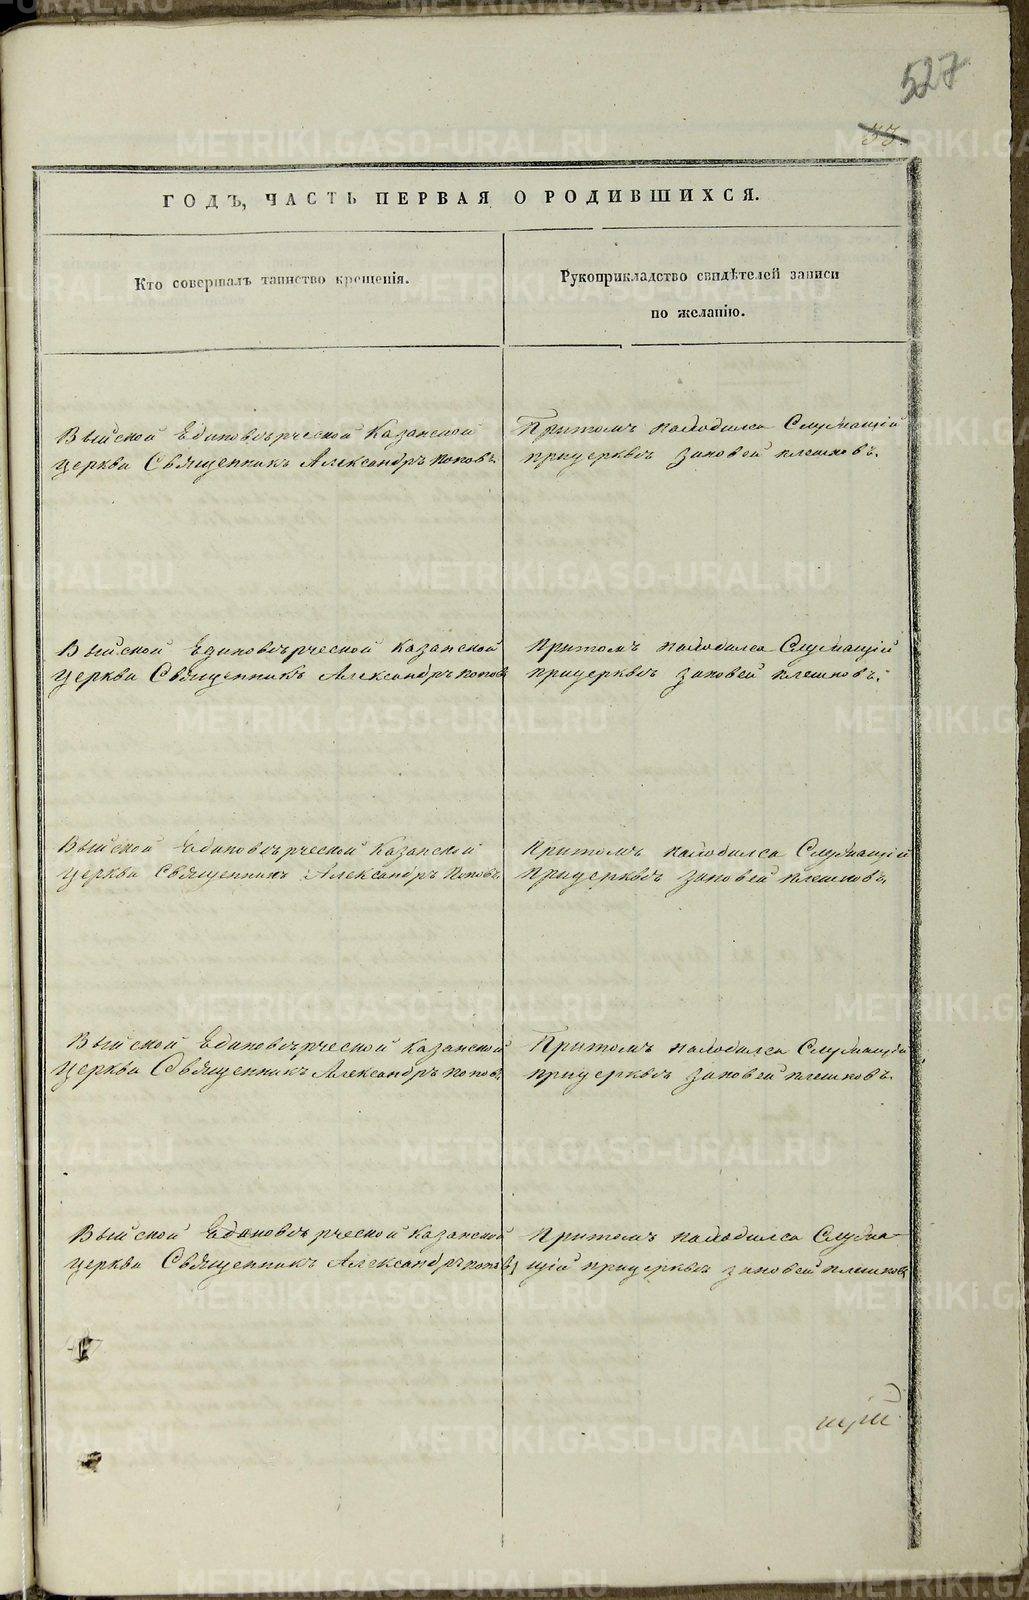 527
33.
ГОДЪ, ЧАСТЬ ПЕРВАЯ О РОДИВШИХСЯ.
Кто совершалъ таинство крещенія.
Рукоприкладство свидѣтелей записи
по желанію.
Выйской Единовѣрческой Казанской
церкви Священникъ Александръ Поповъ
Притомъ находился Служащій
прицерквѣ Зиновей Плешковъ.
Выйской Единовѣрческой Казанской
церкви Священникъ Александръ Поповъ
Притомъ находился Служащій
прицерквѣ Зиновей Плешковъ.
Выйской Единовѣрческой Казанской
церкви Священникъ Александръ Поповъ
Притомъ находился Служащій
прицерквѣ Зиновей Плешковъ.
Выйской Единовѣрческой Казанской
церкви Священникъ Александръ Поповъ
Притомъ находился Служащій
прицерквѣ Зиновей Плешковъ.
Выйской Единовѣрческой Казанской
церкви Священникъ Александръ Поповъ
Притомъ находился Служа-
щій прицерквѣ Зиновей Плешковъ
METRIKI.GASO-URAL.RU